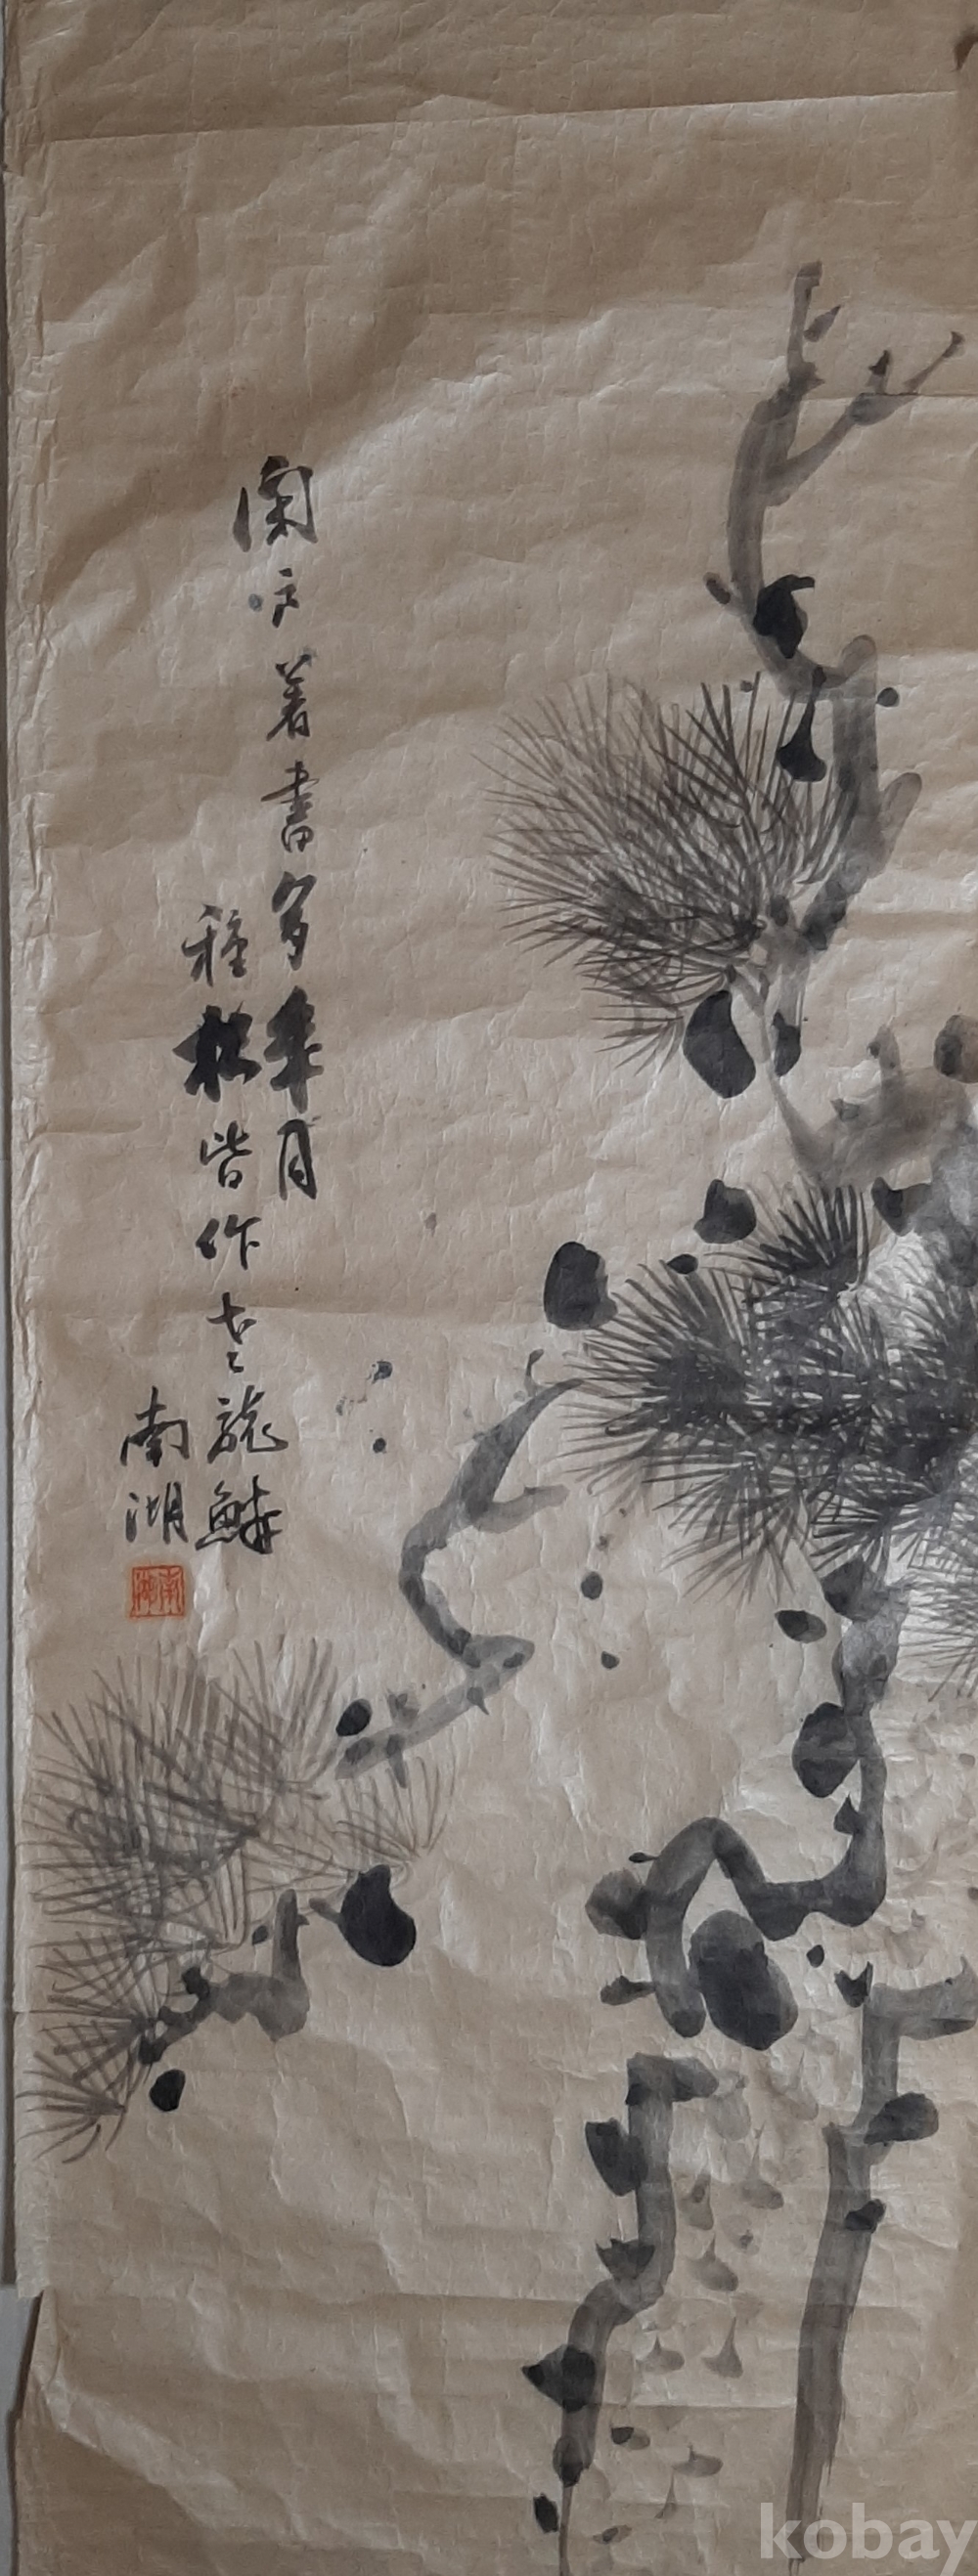 閉戶著書多年月
種松皆作老龍鱗
南湖
南湖
kobay